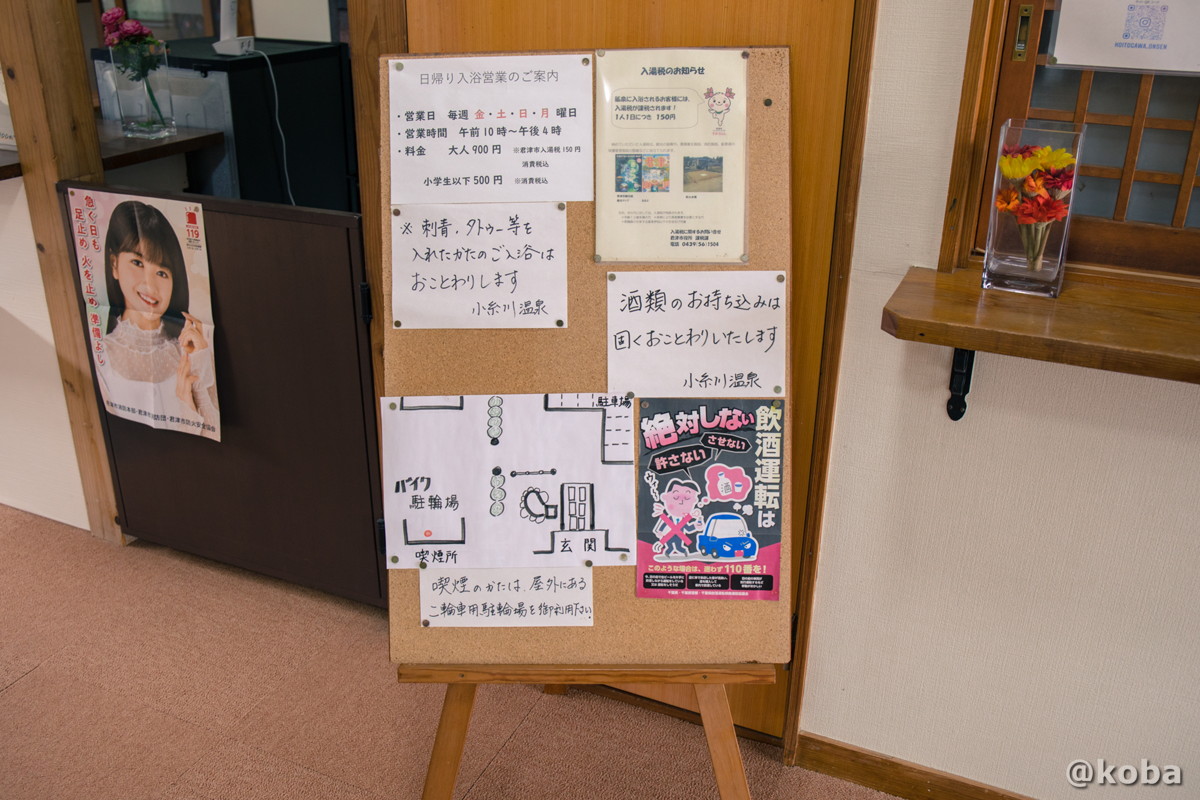 日帰り入浴営業のご案内
・営業日 毎週 金・土・日・月 曜日
・営業時間 午前10時～午後4時
・料金 大人900円 ※君津市入湯税150円
消費税込
小学生以下500円 ※消費税込
※ 刺青、タトゥー等を
入れたかたのご入浴は
おことわりします
小糸川温泉
入湯税のお知らせ
鉱泉に入浴されるお客様には、
入湯税が課税されます！
1人1日につき 150円
入湯税に関するお問い合せ
君津市役所 課税課
電話 0439-56-1504
酒類のお持ち込みは
固くおことわりいたします
小糸川温泉
駐車場
バイク
駐輪場
喫煙所
玄関
喫煙のかたは、屋外にある
二輪車用駐輪場を御利用下さい
飲酒運転は
絶対しない
させない
許さない
酒
このような場合は、迷わず110番を！
急ぐ日も
足止め 火を止め 準備よし
119
KOITOGAWA_ONSEN
@koba